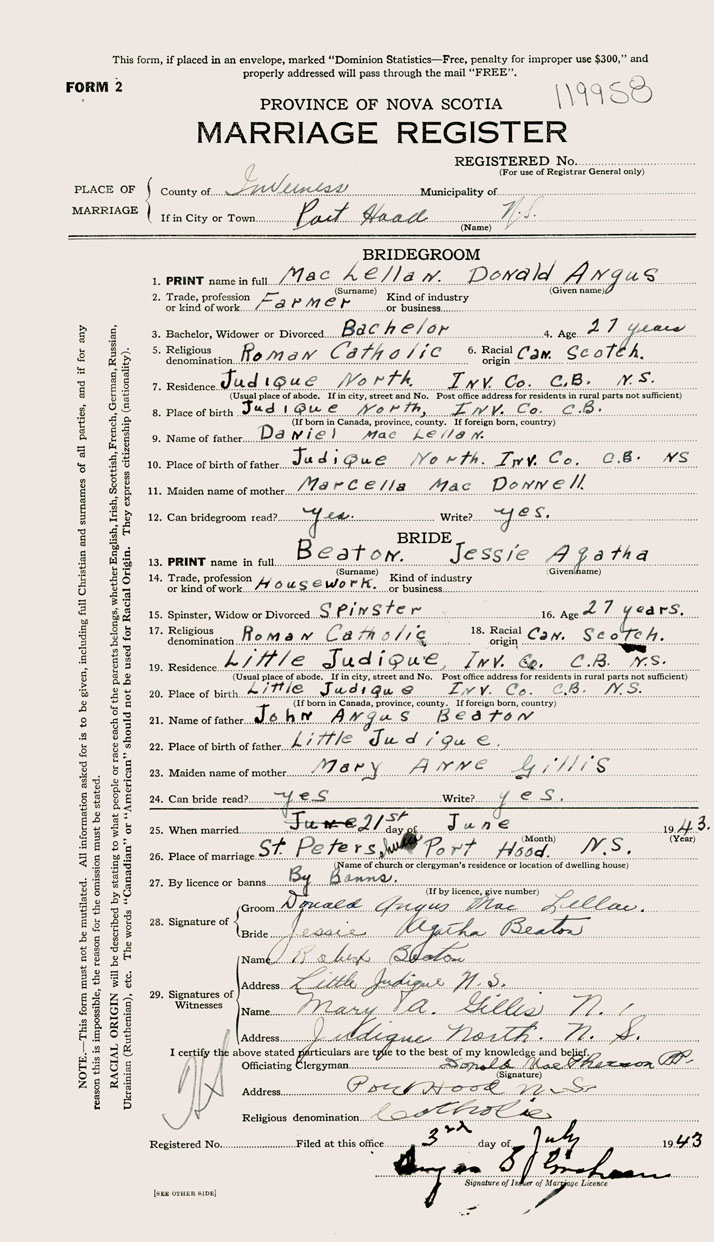 This form, if placed in an envelope, marked "Dominion Statistics—Free, penalty for improper use $300," and
properly addressed will pass through the mail "FREE".
FORM 2
119958
PROVINCE OF NOVA SCOTIA
MARRIAGE REGISTER
REGISTERED No.
(For use of Registrar General only)
PLACE OF MARRIAGE
County of Inverness Municipality of
If in City or Town Port Hood N.S.
(Name)
BRIDEGROOM
1. PRINT name in full Mac Lellan. Donald Angus
(Surname) (Given name)
2. Trade, profession or kind of work Farmer Kind of industry or business
3. Bachelor, Widower or Divorced Bachelor 4. Age 27 years
5. Religious denomination Roman Catholic 6. Racial origin Can. Scotch.
7. Residence Judique North. Inv. Co. C.B. N.S.
(Usual place of abode. If in city, street and No. Post office address for residents in rural parts not sufficient)
8. Place of birth Judique North, Inv. Co. C.B.
(If born in Canada, province, county. If foreign born, country)
9. Name of father Daniel Mac Lellan.
10. Place of birth of father Judique North. Inv. Co. C.B. NS
11. Maiden name of mother Marcella Mac Donnell
12. Can bridegroom read? yes. Write? yes.
BRIDE
13. PRINT name in full Beaton. Jessie Agatha
(Surname) (Given name)
14. Trade, profession or kind of work Housework. Kind of industry or business
15. Spinster, Widow or Divorced Spinster 16. Age 27 years.
17. Religious denomination Roman Catholic 18. Racial origin Can. Scotch.
19. Residence Little Judique, Inv. Co. C.B. N.S.
(Usual place of abode. If in city, street and No. Post office address for residents in rural parts not sufficient)
20. Place of birth Little Judique Inv. Co. C.B. N.S.
(If born in Canada, province, county. If foreign born, country)
21. Name of father John Angus Beaton
22. Place of birth of father Little Judique.
23. Maiden name of mother Mary Anne Gillis
24. Can bride read? yes Write? yes.
25. When married June 21st day of June 1943.
(Month) (Year)
26. Place of marriage St. Peters, Port Hood. N.S.
(Name of church or clergyman's residence or location of dwelling house)
27. By licence or banns By Banns.
(If by licence, give number)
28. Signature of
Groom Donald Angus Mac Lellan.
Bride Jessie Agatha Beaton
29. Signatures of Witnesses
Name Robert Beaton
Address Little Judique N.S.
Name Mary A. Gillis
Address Judique North. N.S.
I certify the above stated particulars are true to the best of my knowledge and belief.
Officiating Clergyman Donald MacPherson P.P.
(Signature)
Address Port Hood N.S.
Religious denomination Catholic
Registered No. Filed at this office 3rd day of July 1943
Signature of Issuer of Marriage Licence
[SEE OTHER SIDE]
NOTE.—This form must not be mutilated. All information asked for is to be given, including full Christian and surnames of all parties, and if for any
reason this is impossible, the reason for the omission must be stated.
RACIAL ORIGIN will be described by stating to what people or race each of the parents belongs, whether English, Irish, Scottish, French, German, Russian,
Ukrainian (Ruthenian), etc. The words "Canadian" or "American" should not be used for Racial Origin. They express citizenship (nationality).